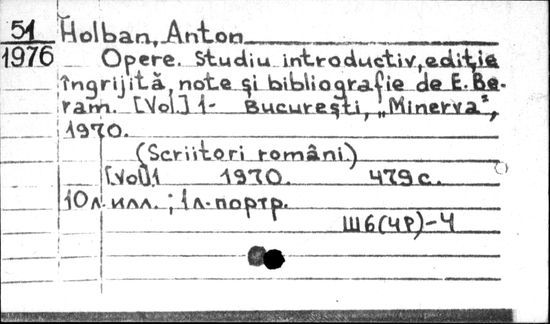 51 Holban, Anton
1976 Opere. Studiu introductiv, ediţie
îngrijită, note şi bibliografie de E. Be-
ram. [Vol.] 1- Bucureşti, „Minerva",
1970.
(Scriitori români.)
[Vol.] 1 1970. 479 с.
10 л. илл. ; 1 л. портр.
Ш6(4Р)-4